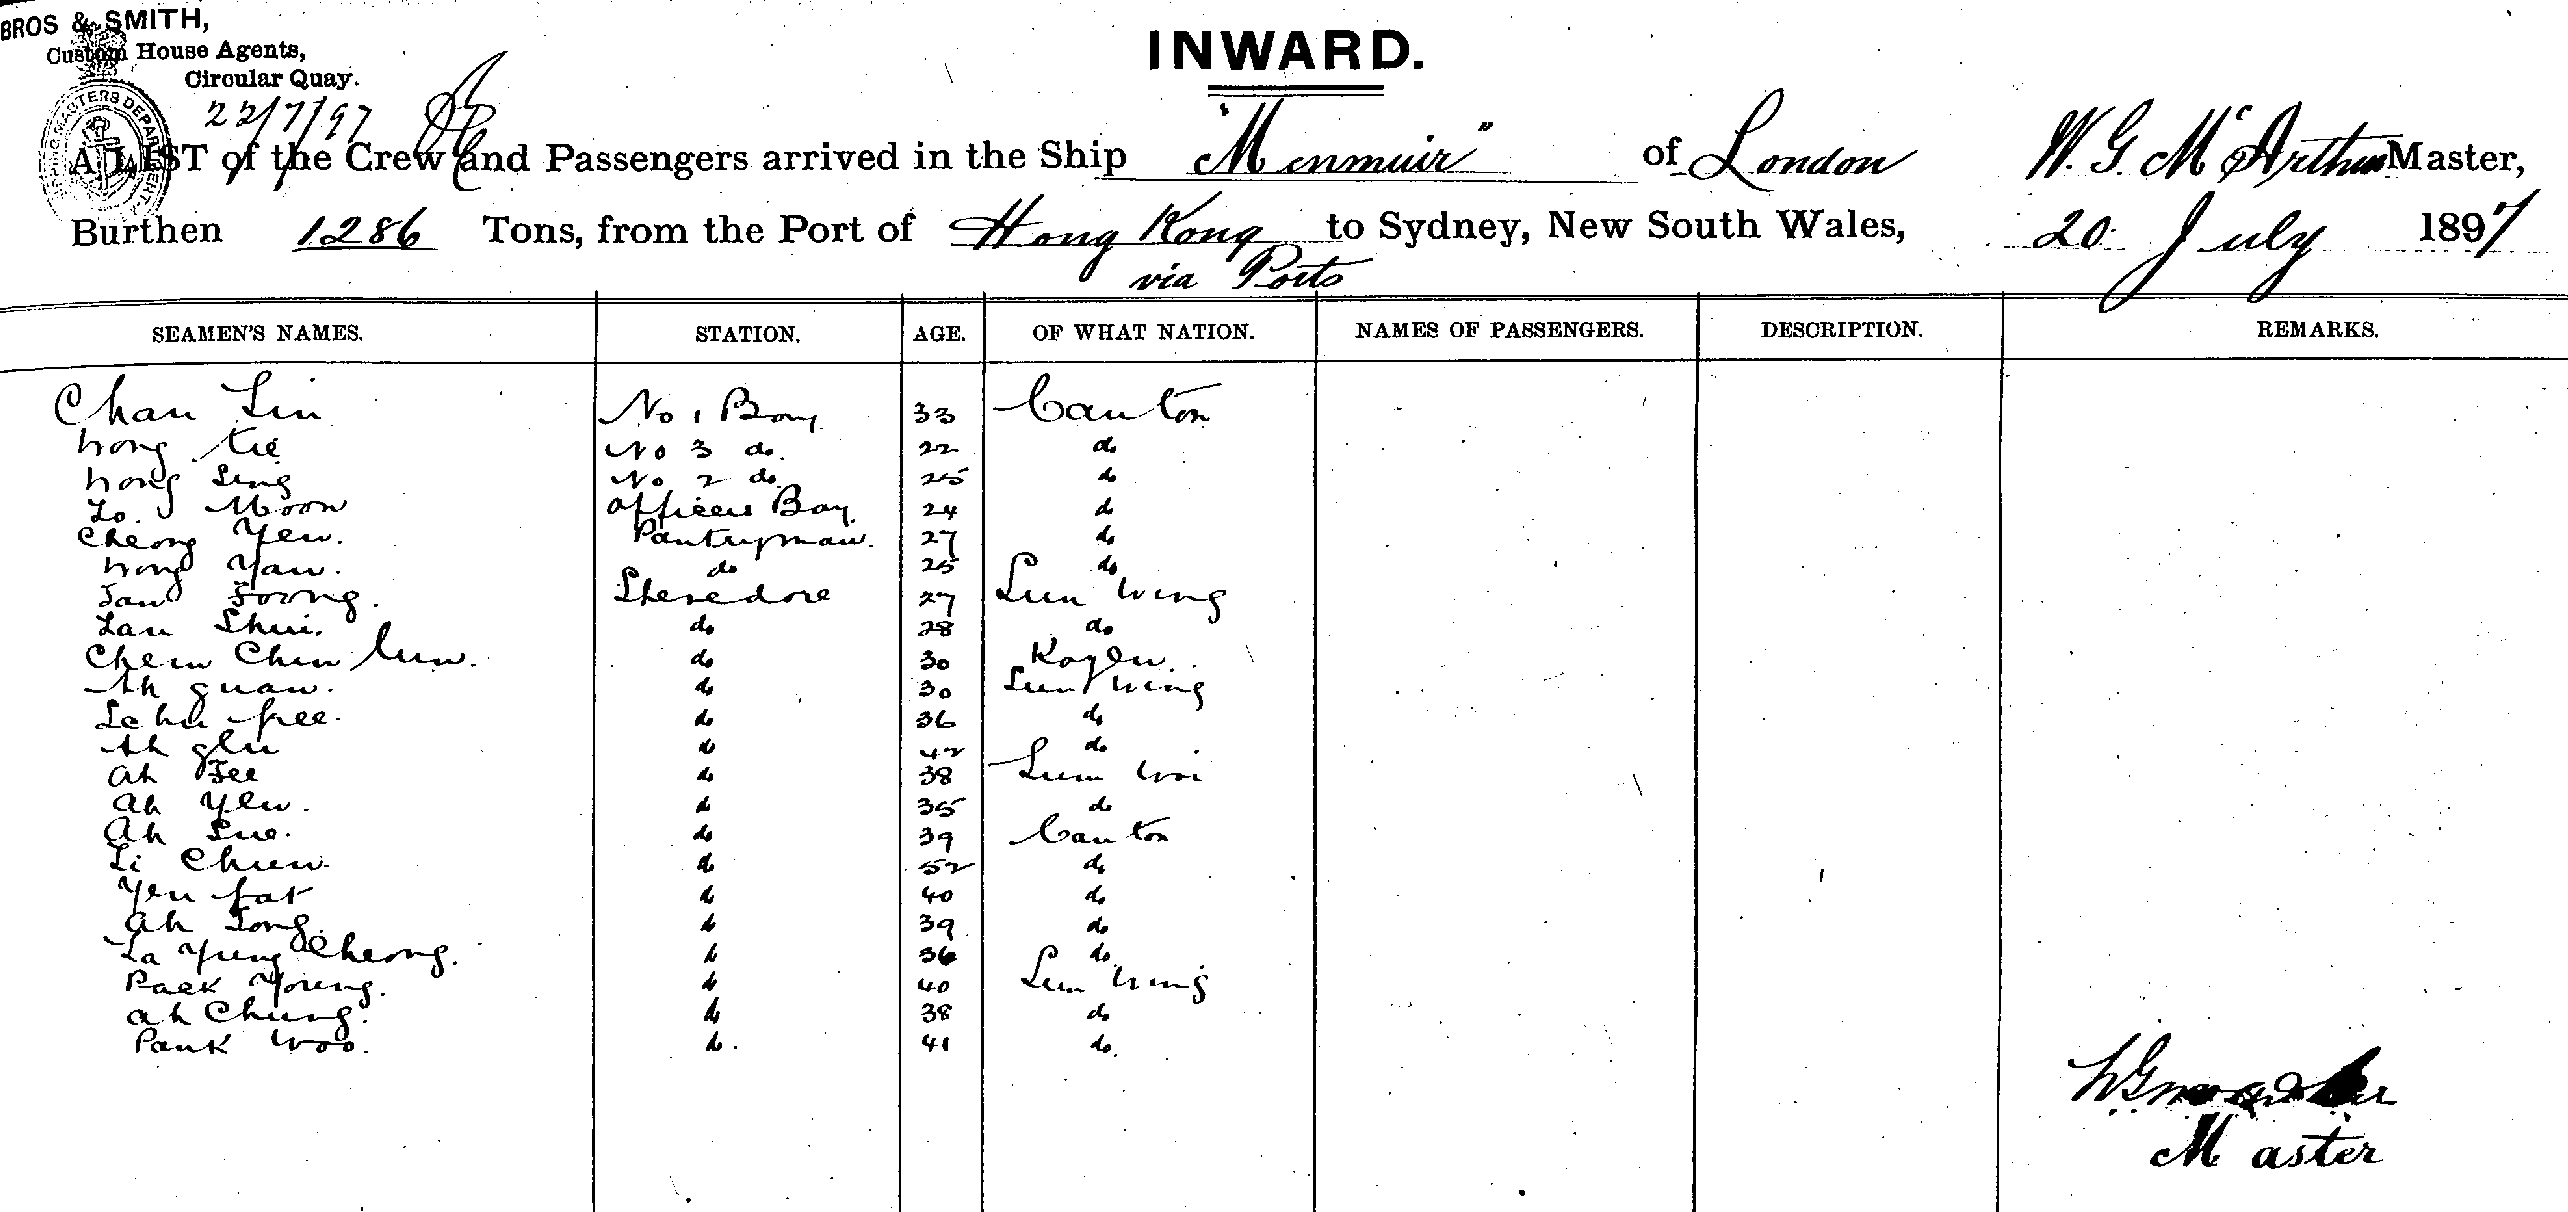 BROS & SMITH,
Custom House Agents,
Circular Quay.
22/7/97
INWARD.
A LIST of the Crew and Passengers arrived in the Ship "Menmuir" of London W. G. McArthur Master,
Burthen 1286 Tons, from the Port of Hong Kong to Sydney, New South Wales, 20 July 1897
via Ports
SEAMEN'S NAMES. STATION. AGE. OF WHAT NATION. NAMES OF PASSENGERS. DESCRIPTION. REMARKS.
Chan Lin No 1 Boy 33 Canton
Wong Kie No 3 do. 22 do
Wong Sing No 2 do 25 do
Lo Moon Officers Boy. 24 do
Cheong Yew. Pantryman. 27 do
Wong Yaw. do 25 do
Foong. Stevedore 27 Sun Wing
Lau Shui. do 28 do
Chew Chin do 30
Ah quan. do 30 Sun Wing
free. do 36 do
Ah do 42 do
Ah Fee do 38 Sum Woi
Ah Yew. do 35 do
Ah Sue. do 39 Canton
Li Chun. do 52 do
Yew fat do 40 do
Ah Song. do 39 do
La Yung Cheong. do 36 do
Paek Young. do 40 Sun Wing
ah Chung. do 38 do
Pauk Woo. do. 41 do.
Master